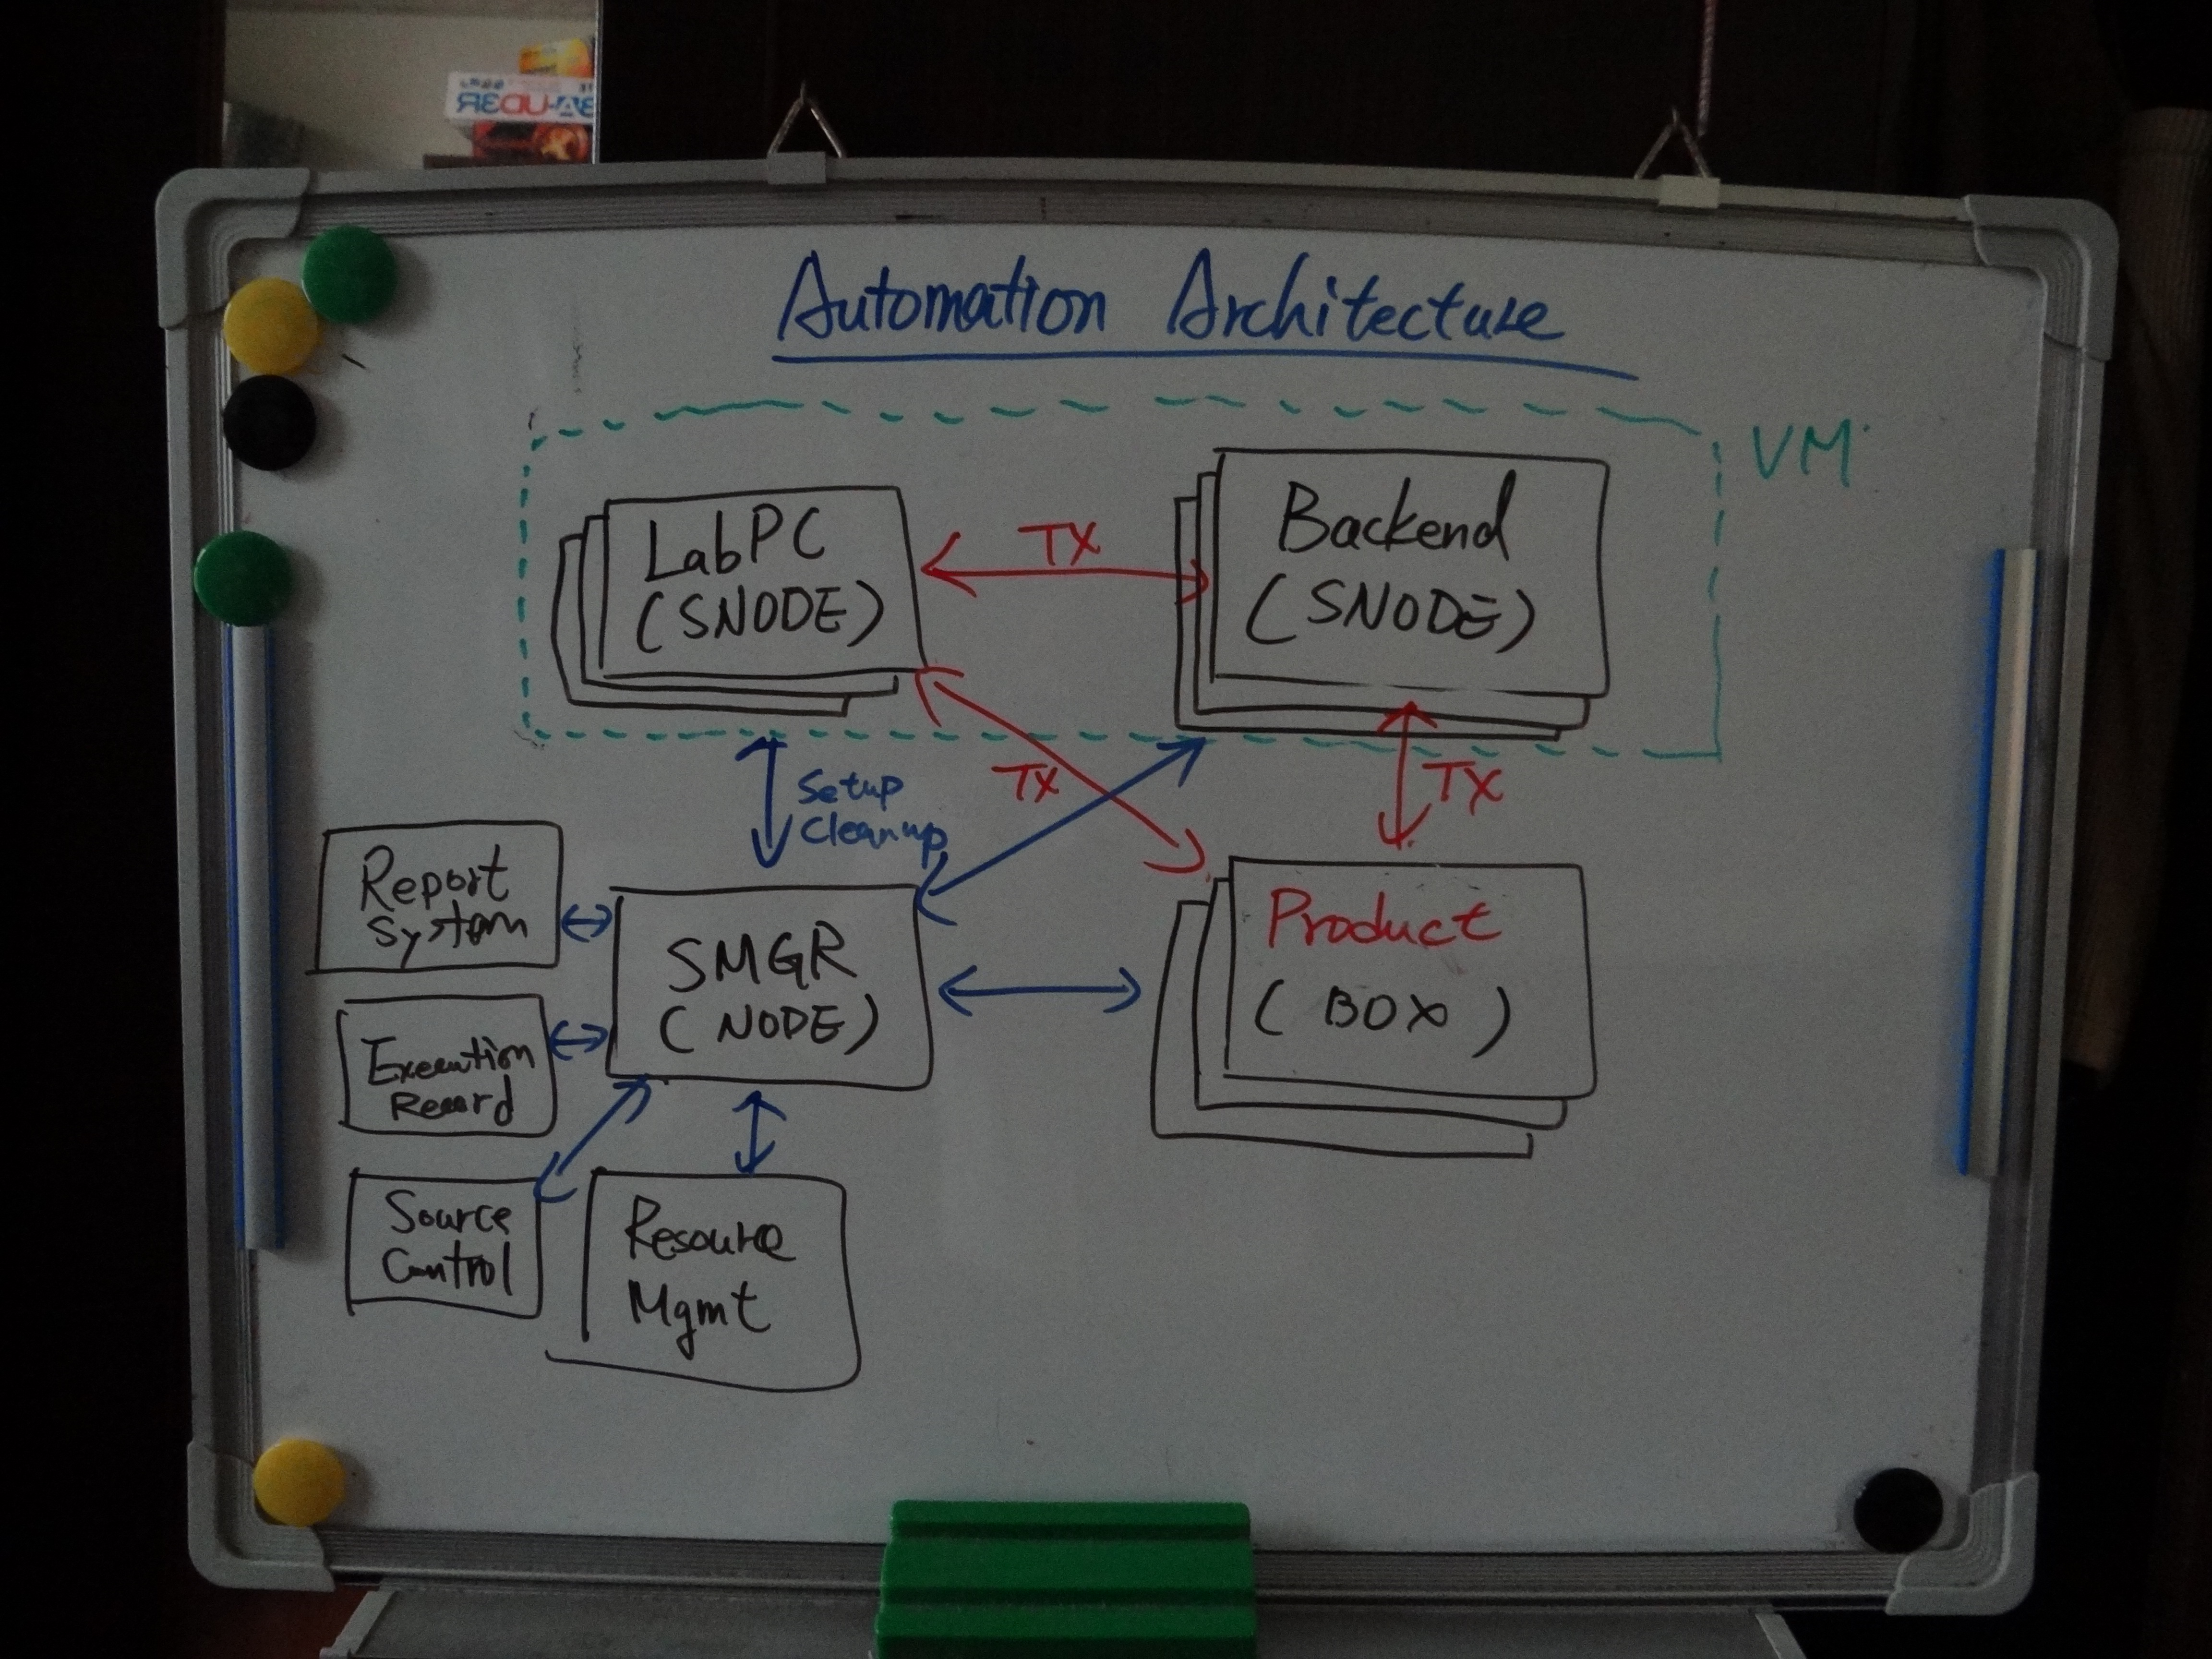 Automation Architecture
VM
LabPC
(SNODE)
TX
Backend
(SNODE)
Setup
Cleanup
TX
TX
Report
System
SMGR
(NODE)
Product
(BOX)
Execution
Record
Source
Control
Resource
Mgmt